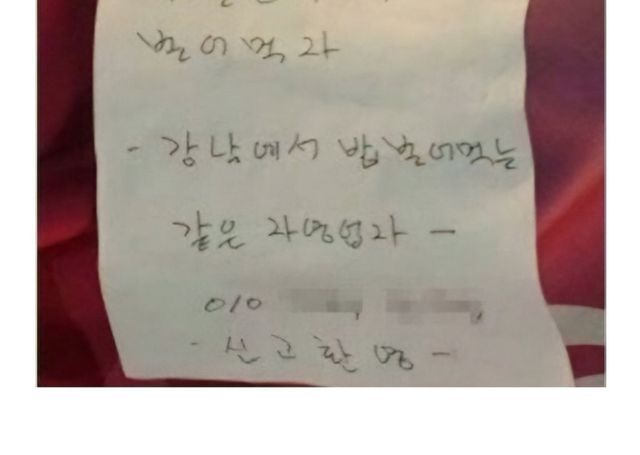 벌어먹자
- 강남에서 밥벌어먹는
같은 자영업자 -
010
- 신고환영 -